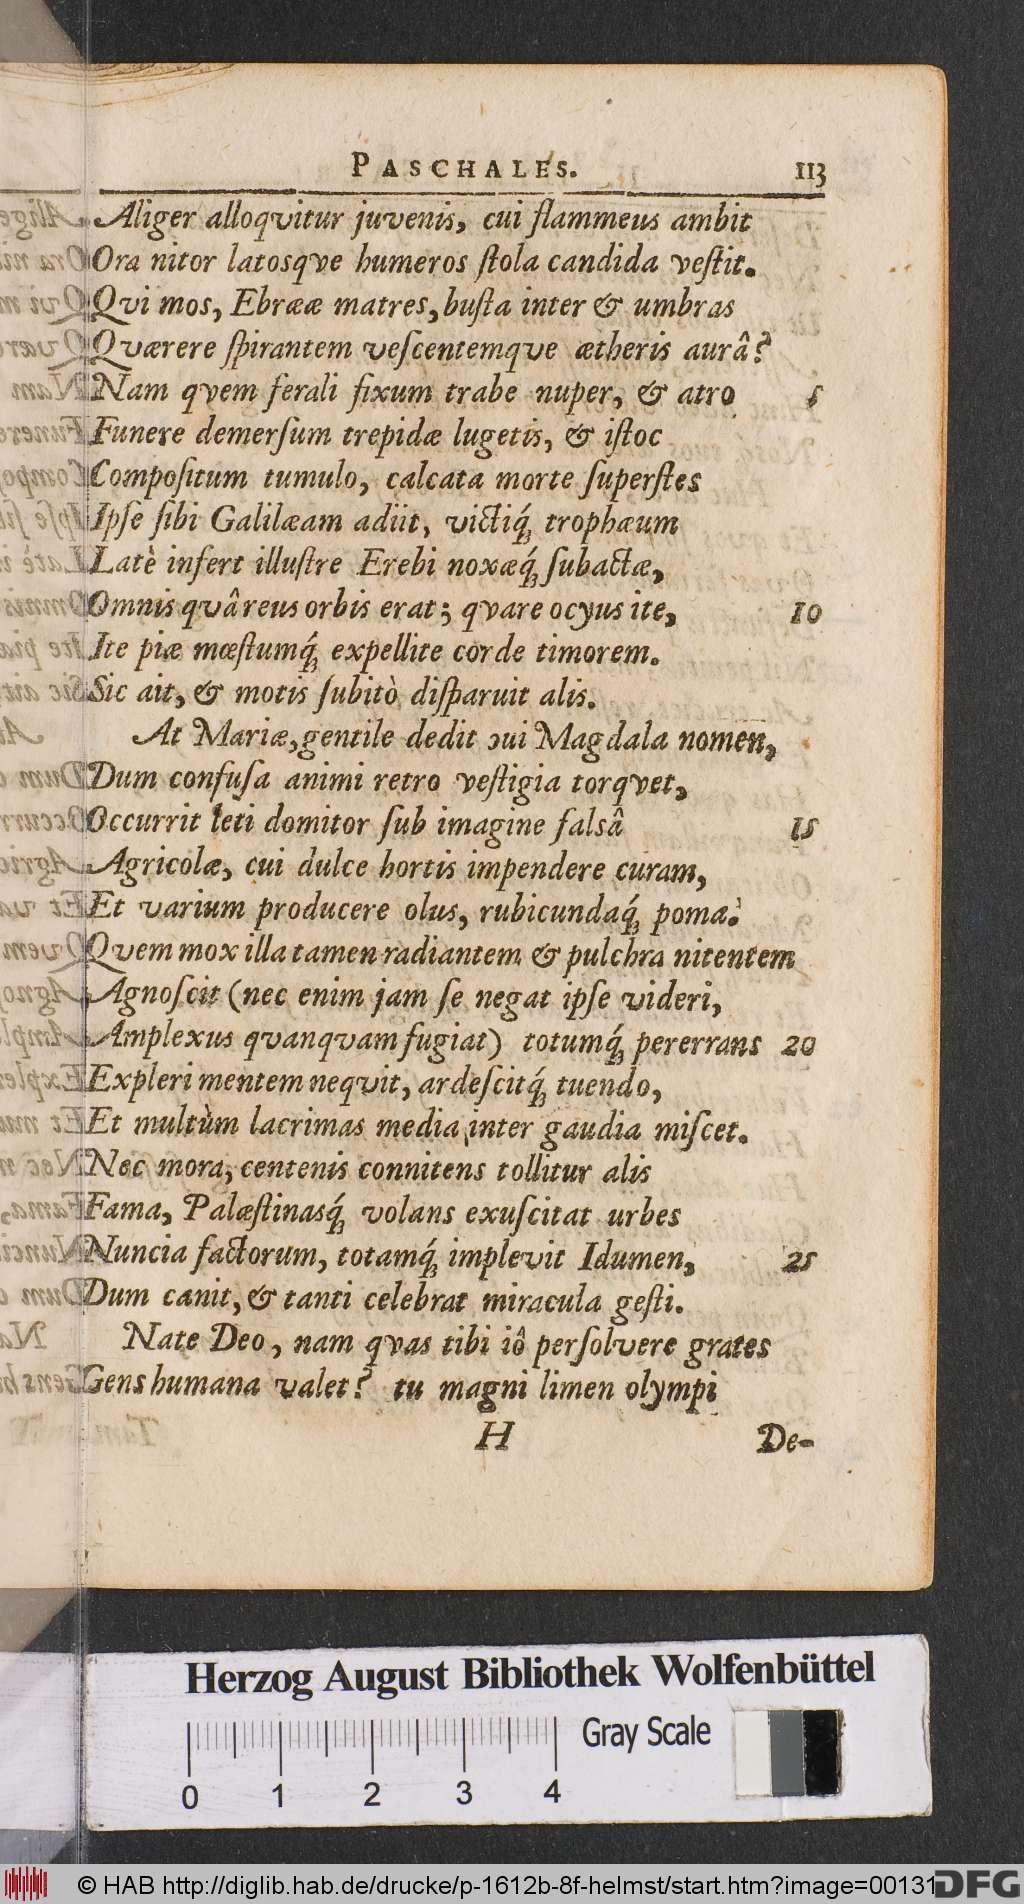 PASCHALES. 113
Aliger alloqvitur juvenis, cui flammeus ambit
Ora nitor latosqve humeros ſtola candida veſtit.
Qvi mos, Ebrææ matres, buſta inter & umbras
Qværere ſpirantem veſcentemqve ætheris aurâ?
Nam qvem ferali fixum trabe nuper, & atro 5
Funere demerſum trepidæ lugetis, & iſtoc
Compoſitum tumulo, calcata morte ſuperſtes
Ipſe ſibi Galilæam adiit, victiq́ꝫ trophæum
Latè infert illuſtre Erebi noxæq́ꝫ ſubactæ,
Omnis qvâ reus orbis erat; qvare ocyus ite, 10
Ite piæ mœſtumq́ꝫ expellite corde timorem.
Sic ait, & motis ſubitò diſparuit alis.
At Mariæ, gentile dedit ɔui Magdala nomen,
Dum confuſa animi retro veſtigia torqvet,
Occurrit leti domitor ſub imagine falsâ 15
Agricolæ, cui dulce hortis impendere curam,
Et varium producere olus, rubicundaq́ꝫ poma.
Qvem mox illa tamen radiantem & pulchra nitentem
Agnoſcit (nec enim jam ſe negat ipſe videri,
Amplexus qvanqvam fugiat) totumq́ꝫ pererrans 20
Expleri mentem neqvit, ardeſcitq́ꝫ tuendo,
Et multùm lacrimas media inter gaudia miſcet.
Nec mora, centenis connitens tollitur alis
Fama, Palæſtinasq́ꝫ volans exuſcitat urbes
Nuncia factorum, totamq́ꝫ implevit Idumen, 25
Dum canit, & tanti celebrat miracula geſti.
Nate Deo, nam qvas tibi iô perſolvere grates
Gens humana valet? tu magni limen olympi
H De-
Herzog August Bibliothek Wolfenbüttel
Gray Scale
0 1 2 3 4
© HAB http://diglib.hab.de/drucke/p-1612b-8f-helmst/start.htm?image=00131
DFG